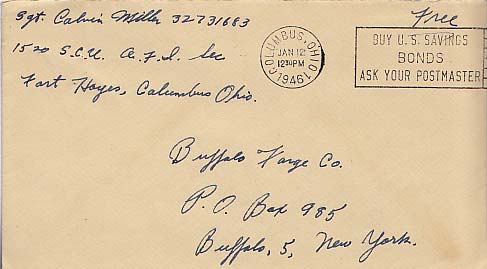 Sgt. Calvin Miller 32731683
Free
1520 S.C.U. A.F.I. Sec
Fort Hayes, Columbus Ohio.
COLUMBUS, OHIO
JAN 12
1230PM
1946
BUY U.S. SAVINGS
BONDS
ASK YOUR POSTMASTER
Buffalo Forge Co.
P. O. Box 985
Buffalo, 5, New York.